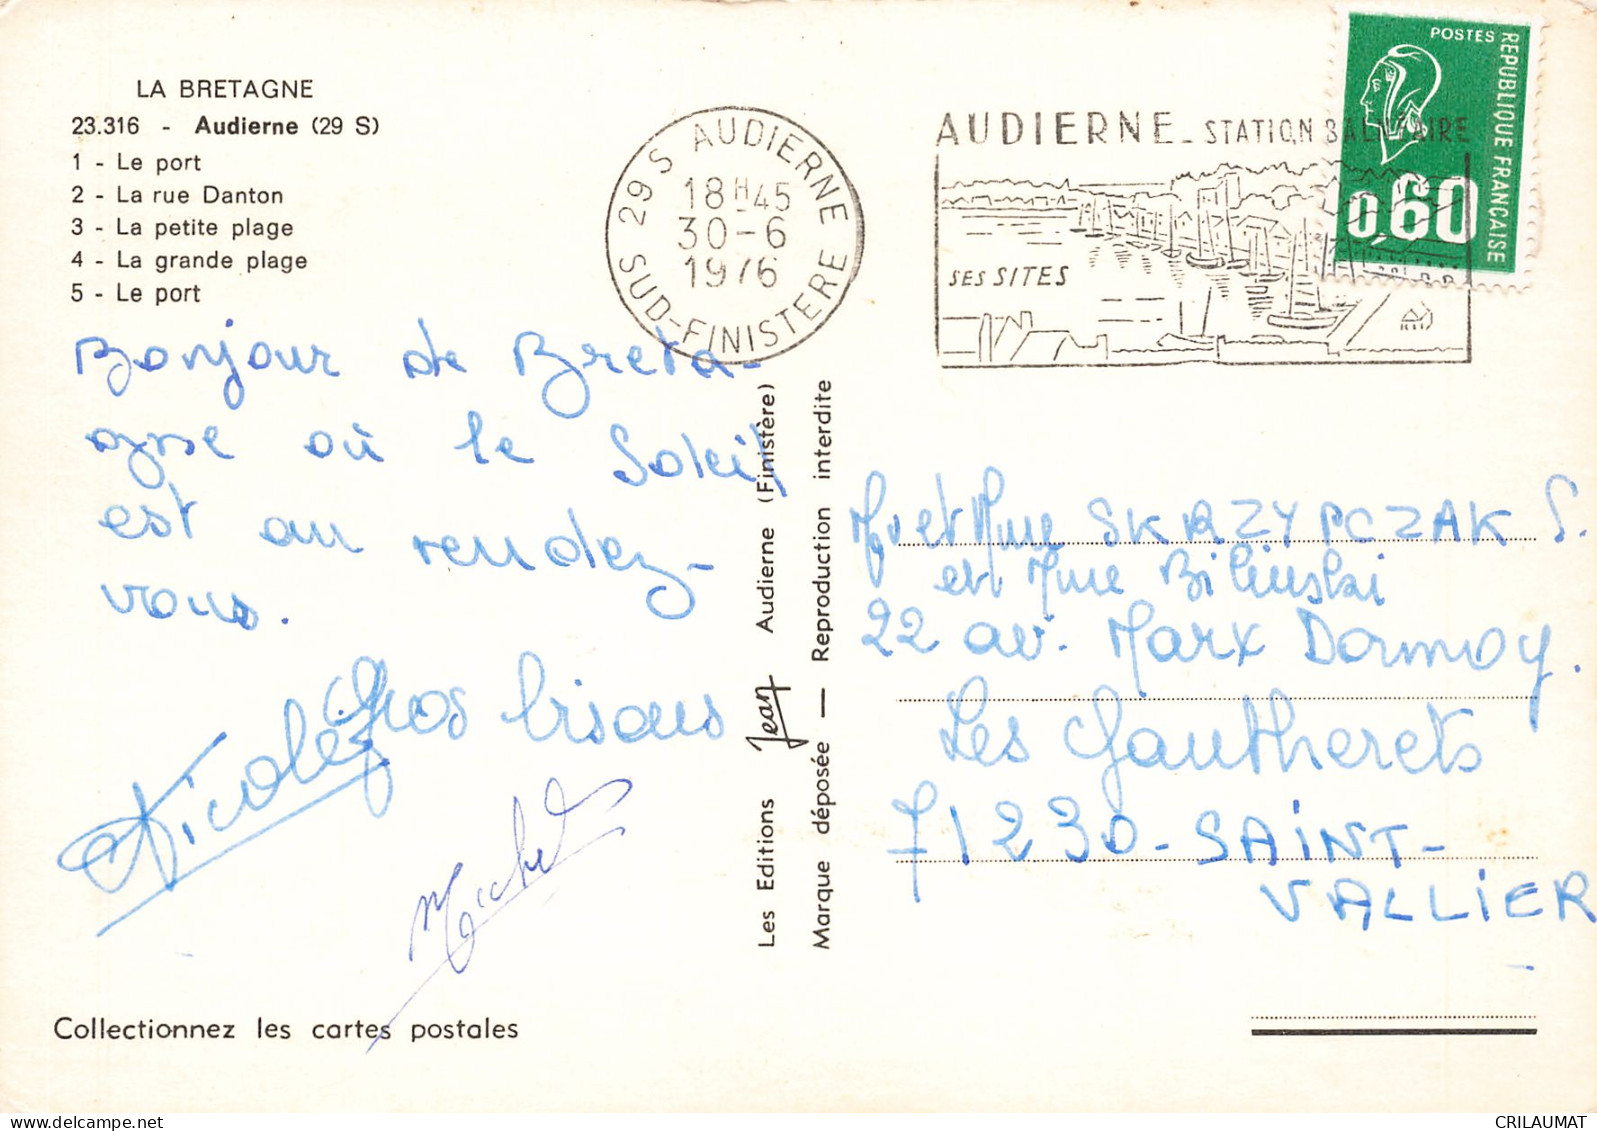 LA BRETAGNE
23.316 - Audierne (29 S)
1 - Le port
2 - La rue Danton
3 - La petite plage
4 - La grande plage
5 - Le port
Bonjour de Breta-
gne où le Soleil
est au rendez-
vous.
Gros bisous
Nicole
Michel
Collectionnez les cartes postales
Les Editions Jean Audierne (Finistère)
Marque déposée — Reproduction interdite
29 S AUDIERNE
18H45
30-6
1976
SUD-FINISTERE
AUDIERNE - STATION BALNEAIRE
SES SITES
POSTES
REPUBLIQUE FRANÇAISE
0,60
Mr et Mme SKRZYPCZAK S.
et Mme Bilinski
22 av. Marx Dormoy.
Les Gautherets
71230 - SAINT-
VALLIER
CRILAUMAT